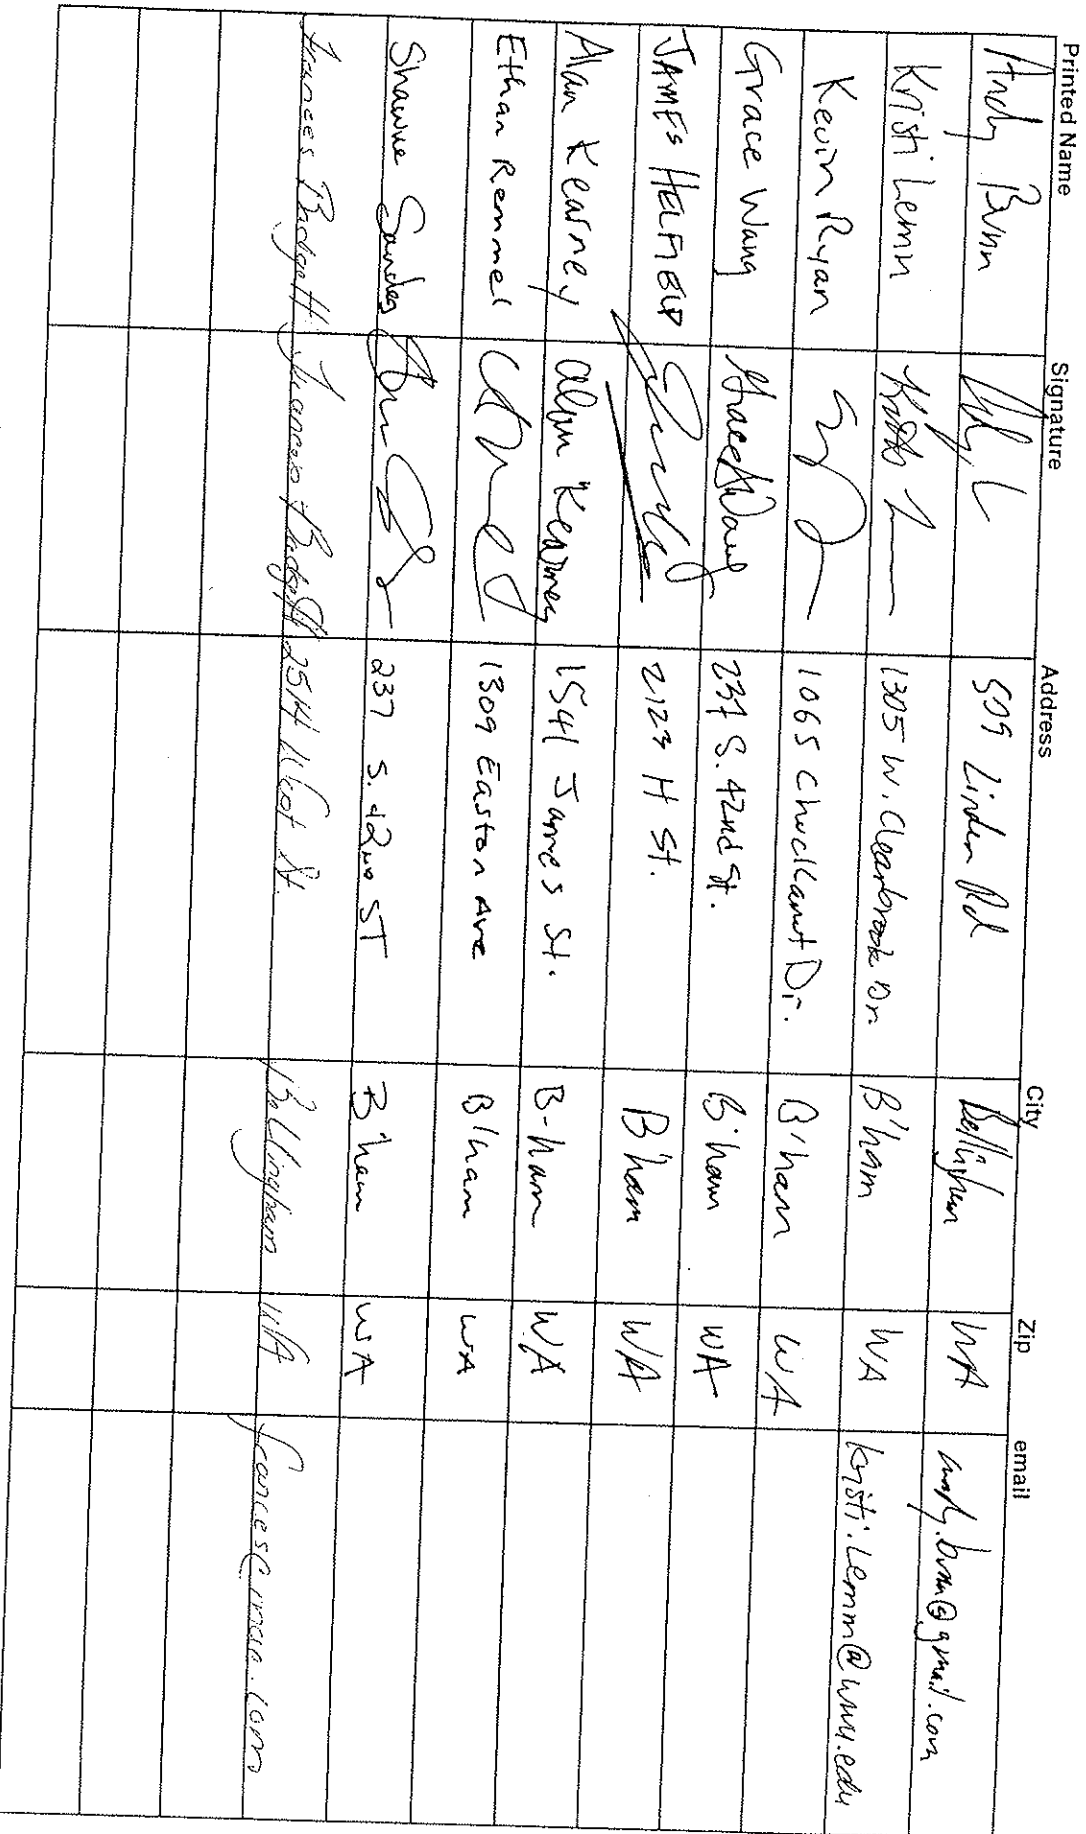 Printed Name Signature Address City Zip email
Andy Bunn 509 Linden Rd Bellingham WA andy.bunn@gmail.com
Kristi Lemm 1305 W. Clearbrook Dr. B'ham WA kristi.lemm@wwu.edu
Kevin Ryan 1065 Chuckanut Dr. B'ham WA
Grace Wang Grace A Wang 237 S. 42nd St. B'ham WA
JAMES HELFIELD 2123 H St. B'ham WA
Alan Kearney Alan Kearney 1541 James St. B-ham WA
Ethan Remmel 1309 Easton Ave B'ham WA
Shawne Sanders 237 S. 42ND ST B'ham WA
Frances Badgett Frances Badgett 2514 West St. Bellingham WA